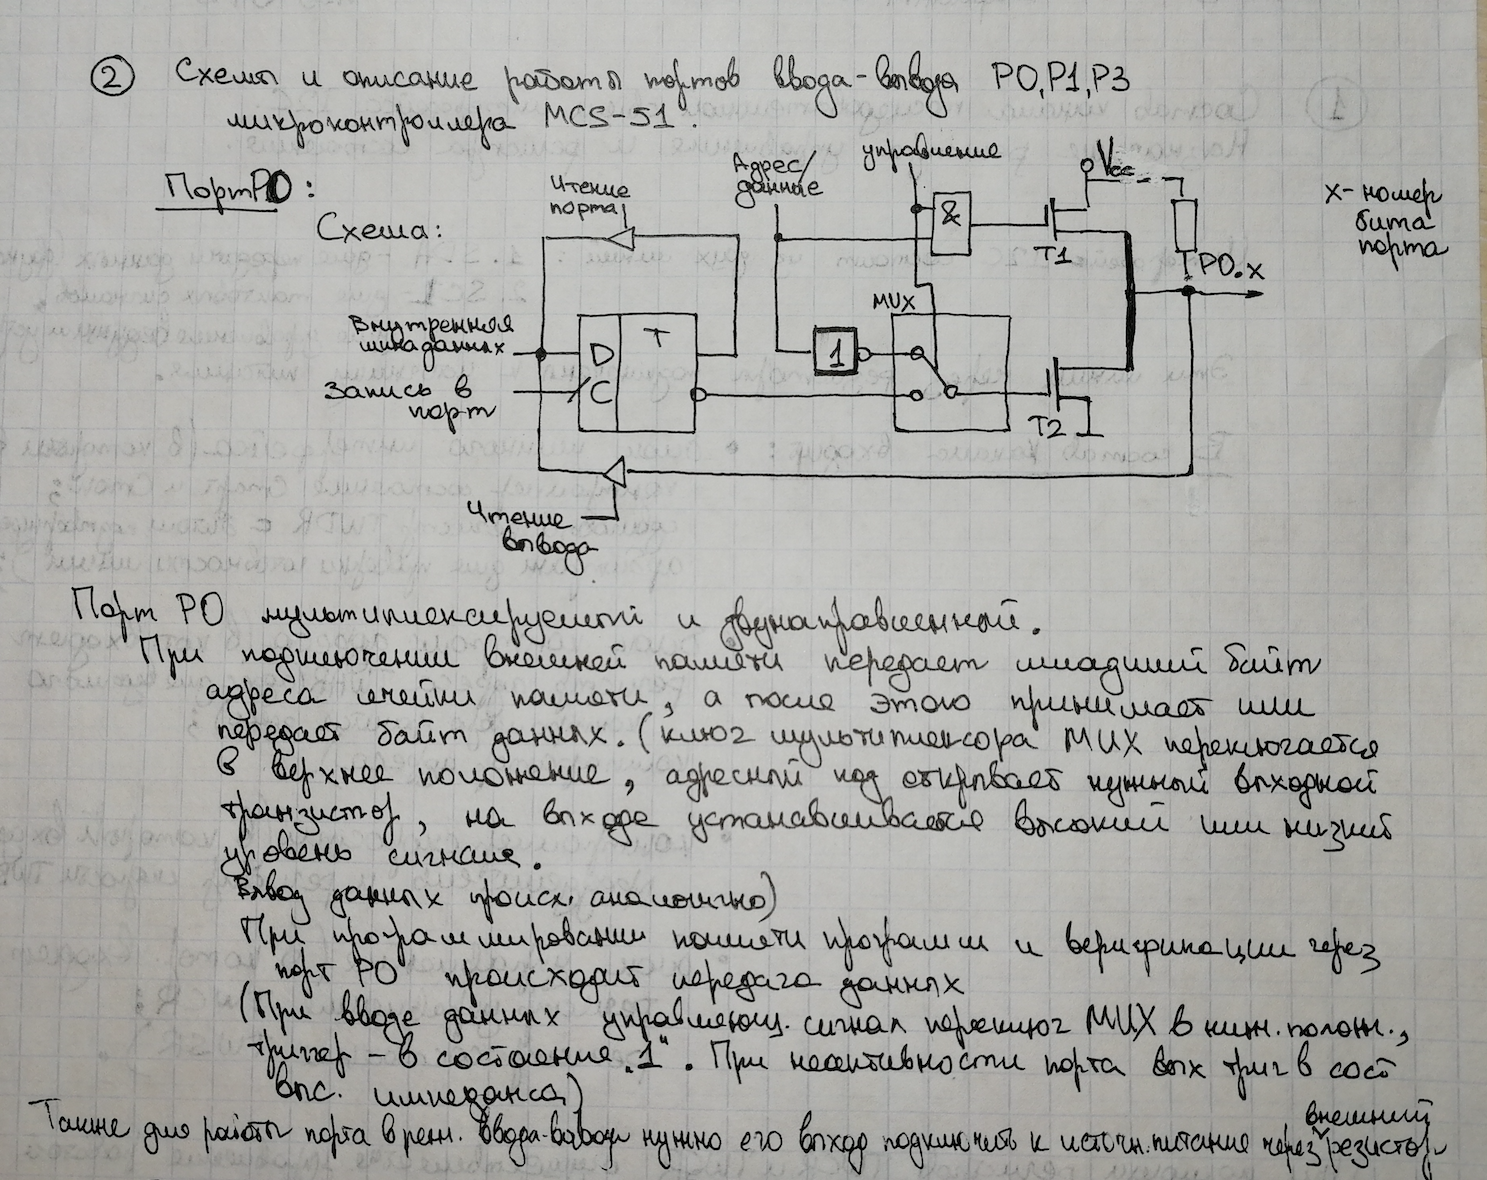 ② Схемы и описание работы портов ввода-вывода P0, P1, P3
микроконтроллера MCS-51.
Порт P0:
Схема:
Чтение
порта
Адрес/
данные
управление
Vcc
x- номер
бита
порта
&
T1
P0.x
MUX
Внутренняя
шина данных
D
T
1
Запись в
порт
C
T2
Чтение
вывода
Порт P0 мультиплексируемый и двунаправленный.
При подключении внешней памяти передает младший байт
адреса ячейки памяти, а после этого принимает или
передает байт данных. (ключ мультиплексора MUX переключается
в верхнее положение, адресный код открывает нужный выходной
транзистор, на выходе устанавливается высокий или низкий
уровень сигнала.
Ввод данных происх. аналогично)
При программировании памяти программ и верификации через
порт P0 происходит передача данных
(При вводе данных управляющ. сигнал переключ MUX в нижн. полож.,
триггер - в состояние „1". При неактивности порта вых триг в сост
выс. импеданса)
Также для работы порта в реж. ввода-вывода нужно его выход подключить к источн. питание через внешний резистор